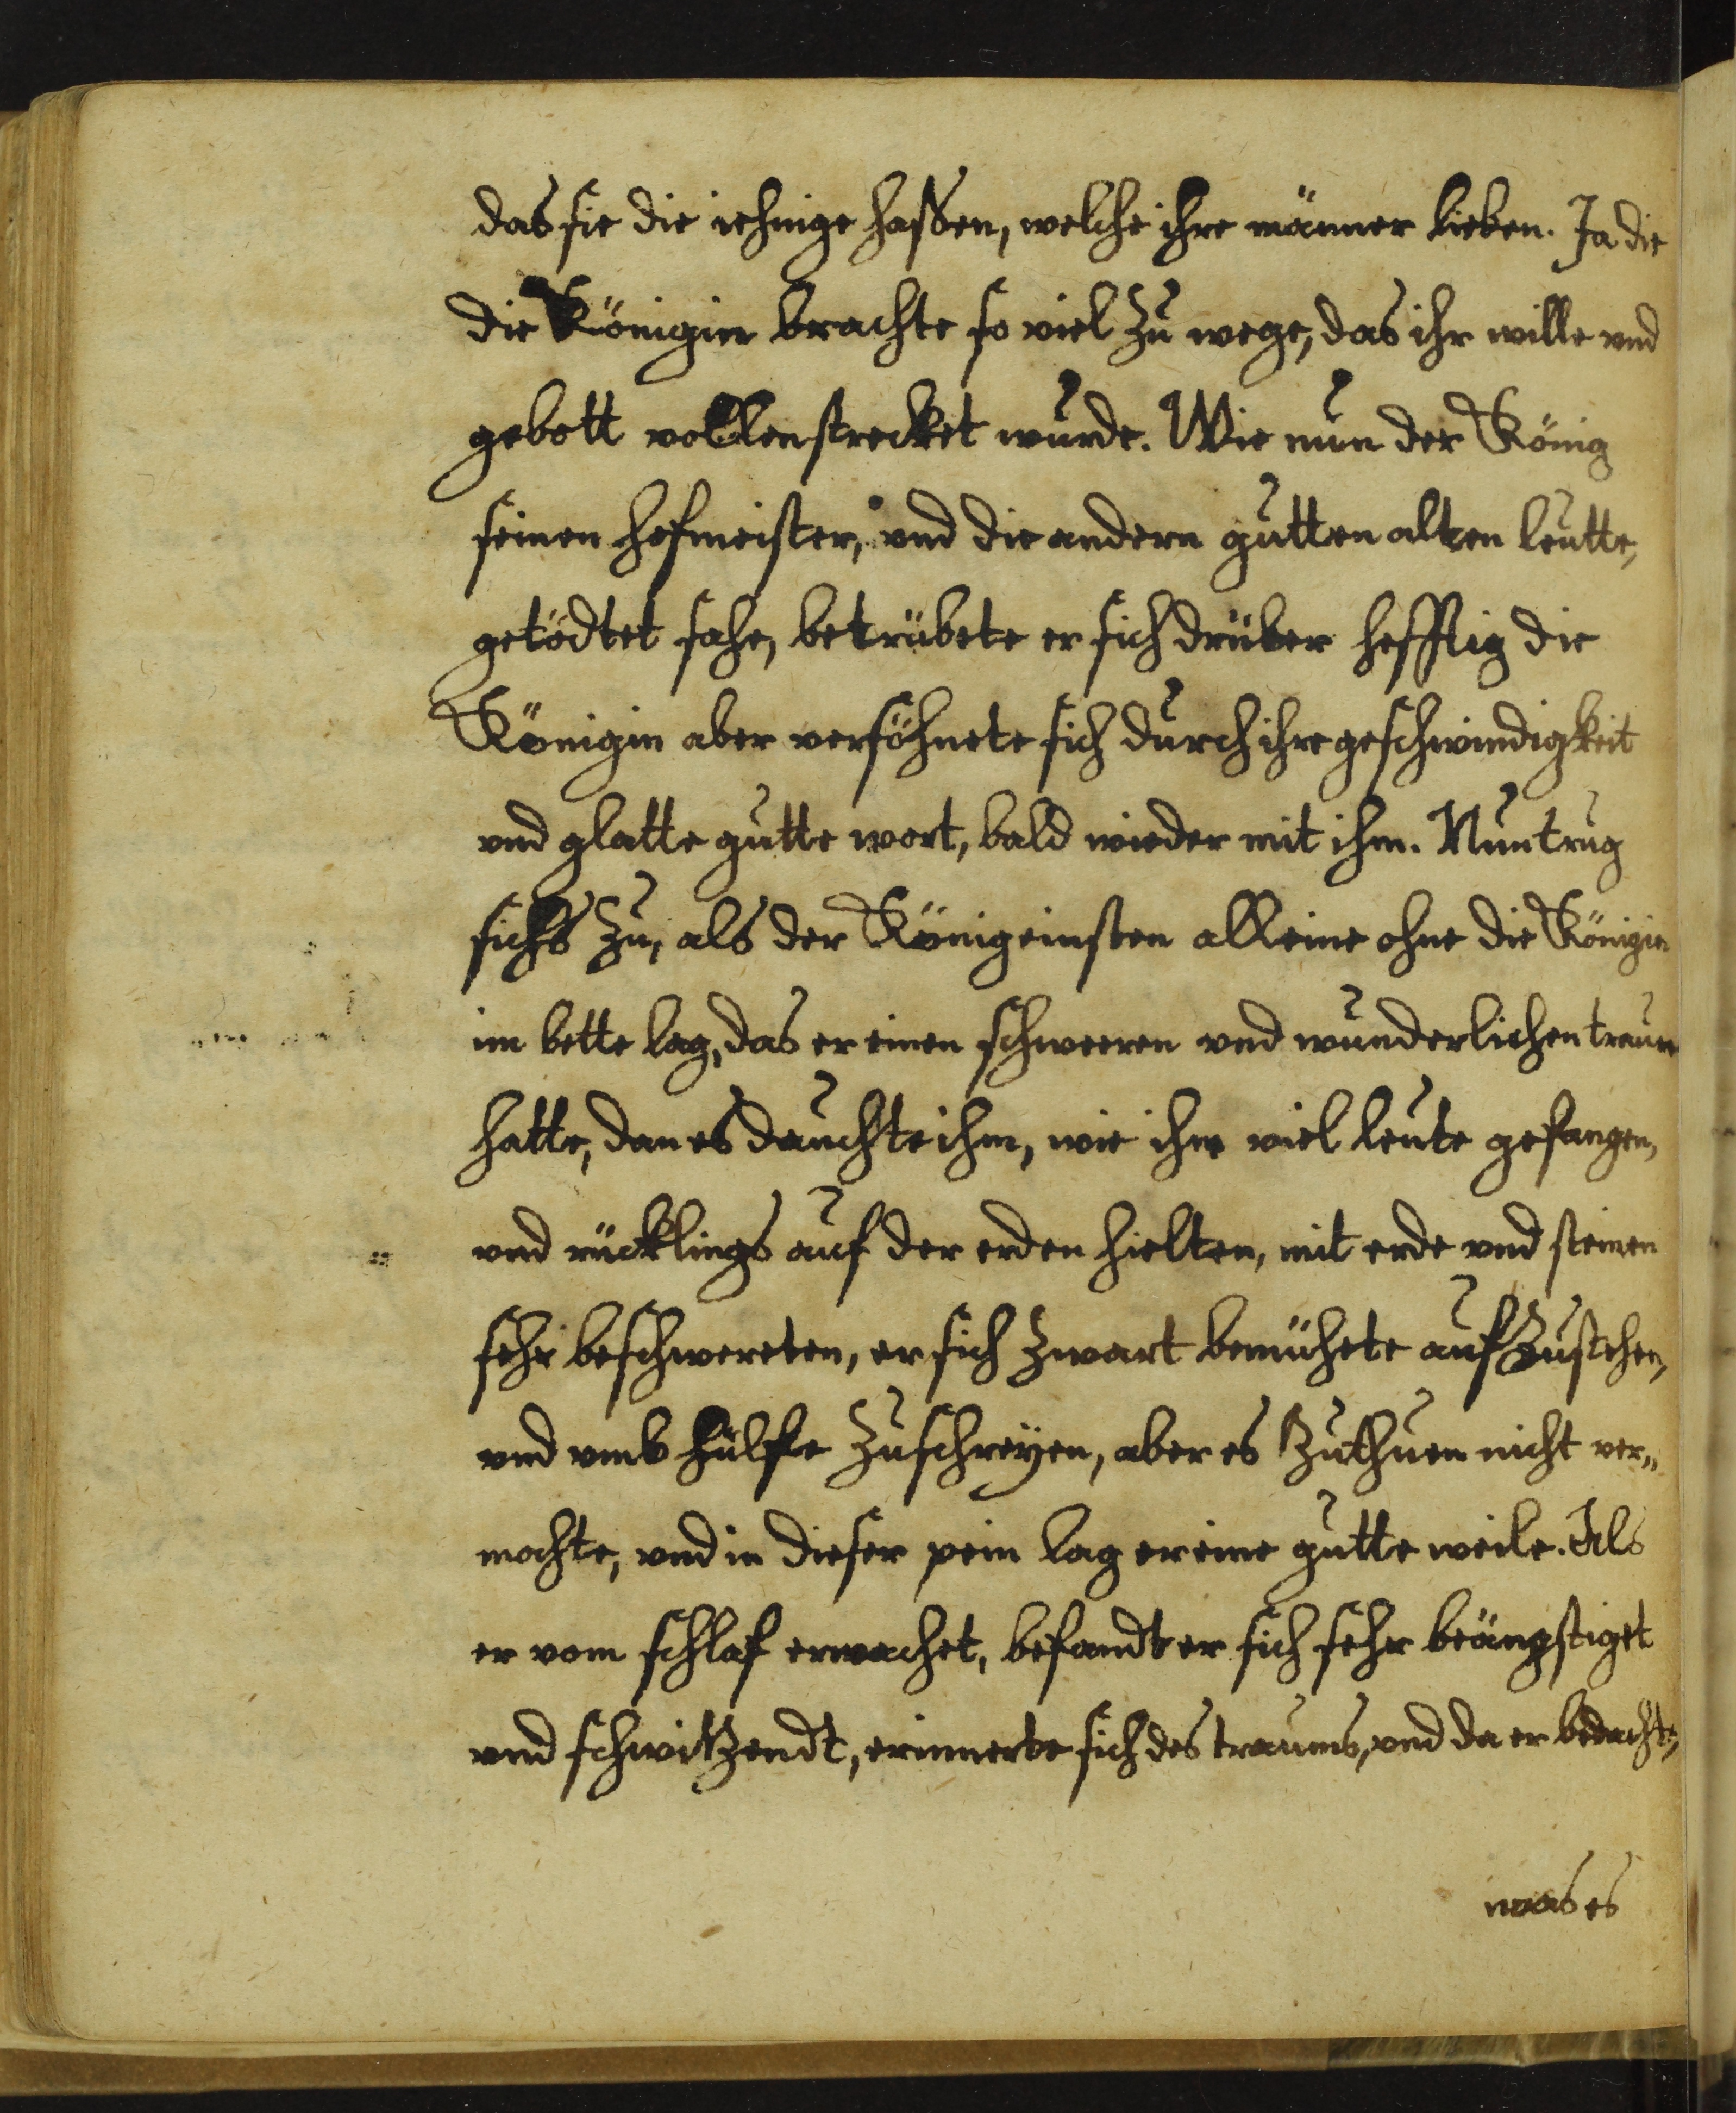 das sie die iehnige hassen, welche ihre männer lieben. Ja die
die Königin brachte so viel zu wege, das ihr wille vnd
gebott vollenstrecket wurde. Wie nun der König
seinen hofmeister, vnd die andern gutten alten leutte,
getödtet sahe, betrübete er sich drüber hefftig die
Königin aber versöhnete sich durch ihre geschwindigkeit
vnd glatte gutte wort, bald wieder mit ihm. Nun trug
sichs zu, als der König einsten alleine ohne die Königin
im bette lag, das er einen schweeren vnd wunderlichen traum
hatte, dan es dauchte ihm, wie ihn viel leute gefangen,
vnd rücklings auf der erden hielten, mit erde vnd steinen
sehr beschwereten, er sich zwart bemühete aufzustehen,
vnd vmb hülffe zuschreyen, aber es zuthuen nicht ver„
mochte, vnd in dieser pein lag er eine gutte weile. Als
er vom schlaf erwachet, befandt er sich sehr beängstiget
vnd schwitzendt, erinnerte sich des traums, vnd da er bedachte,
was es